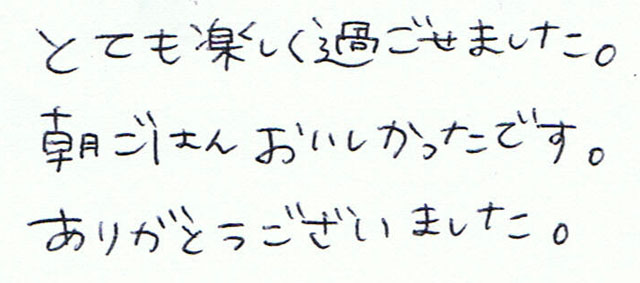 とても楽しく過ごせました。
朝ごはんおいしかったです。
ありがとうございました。